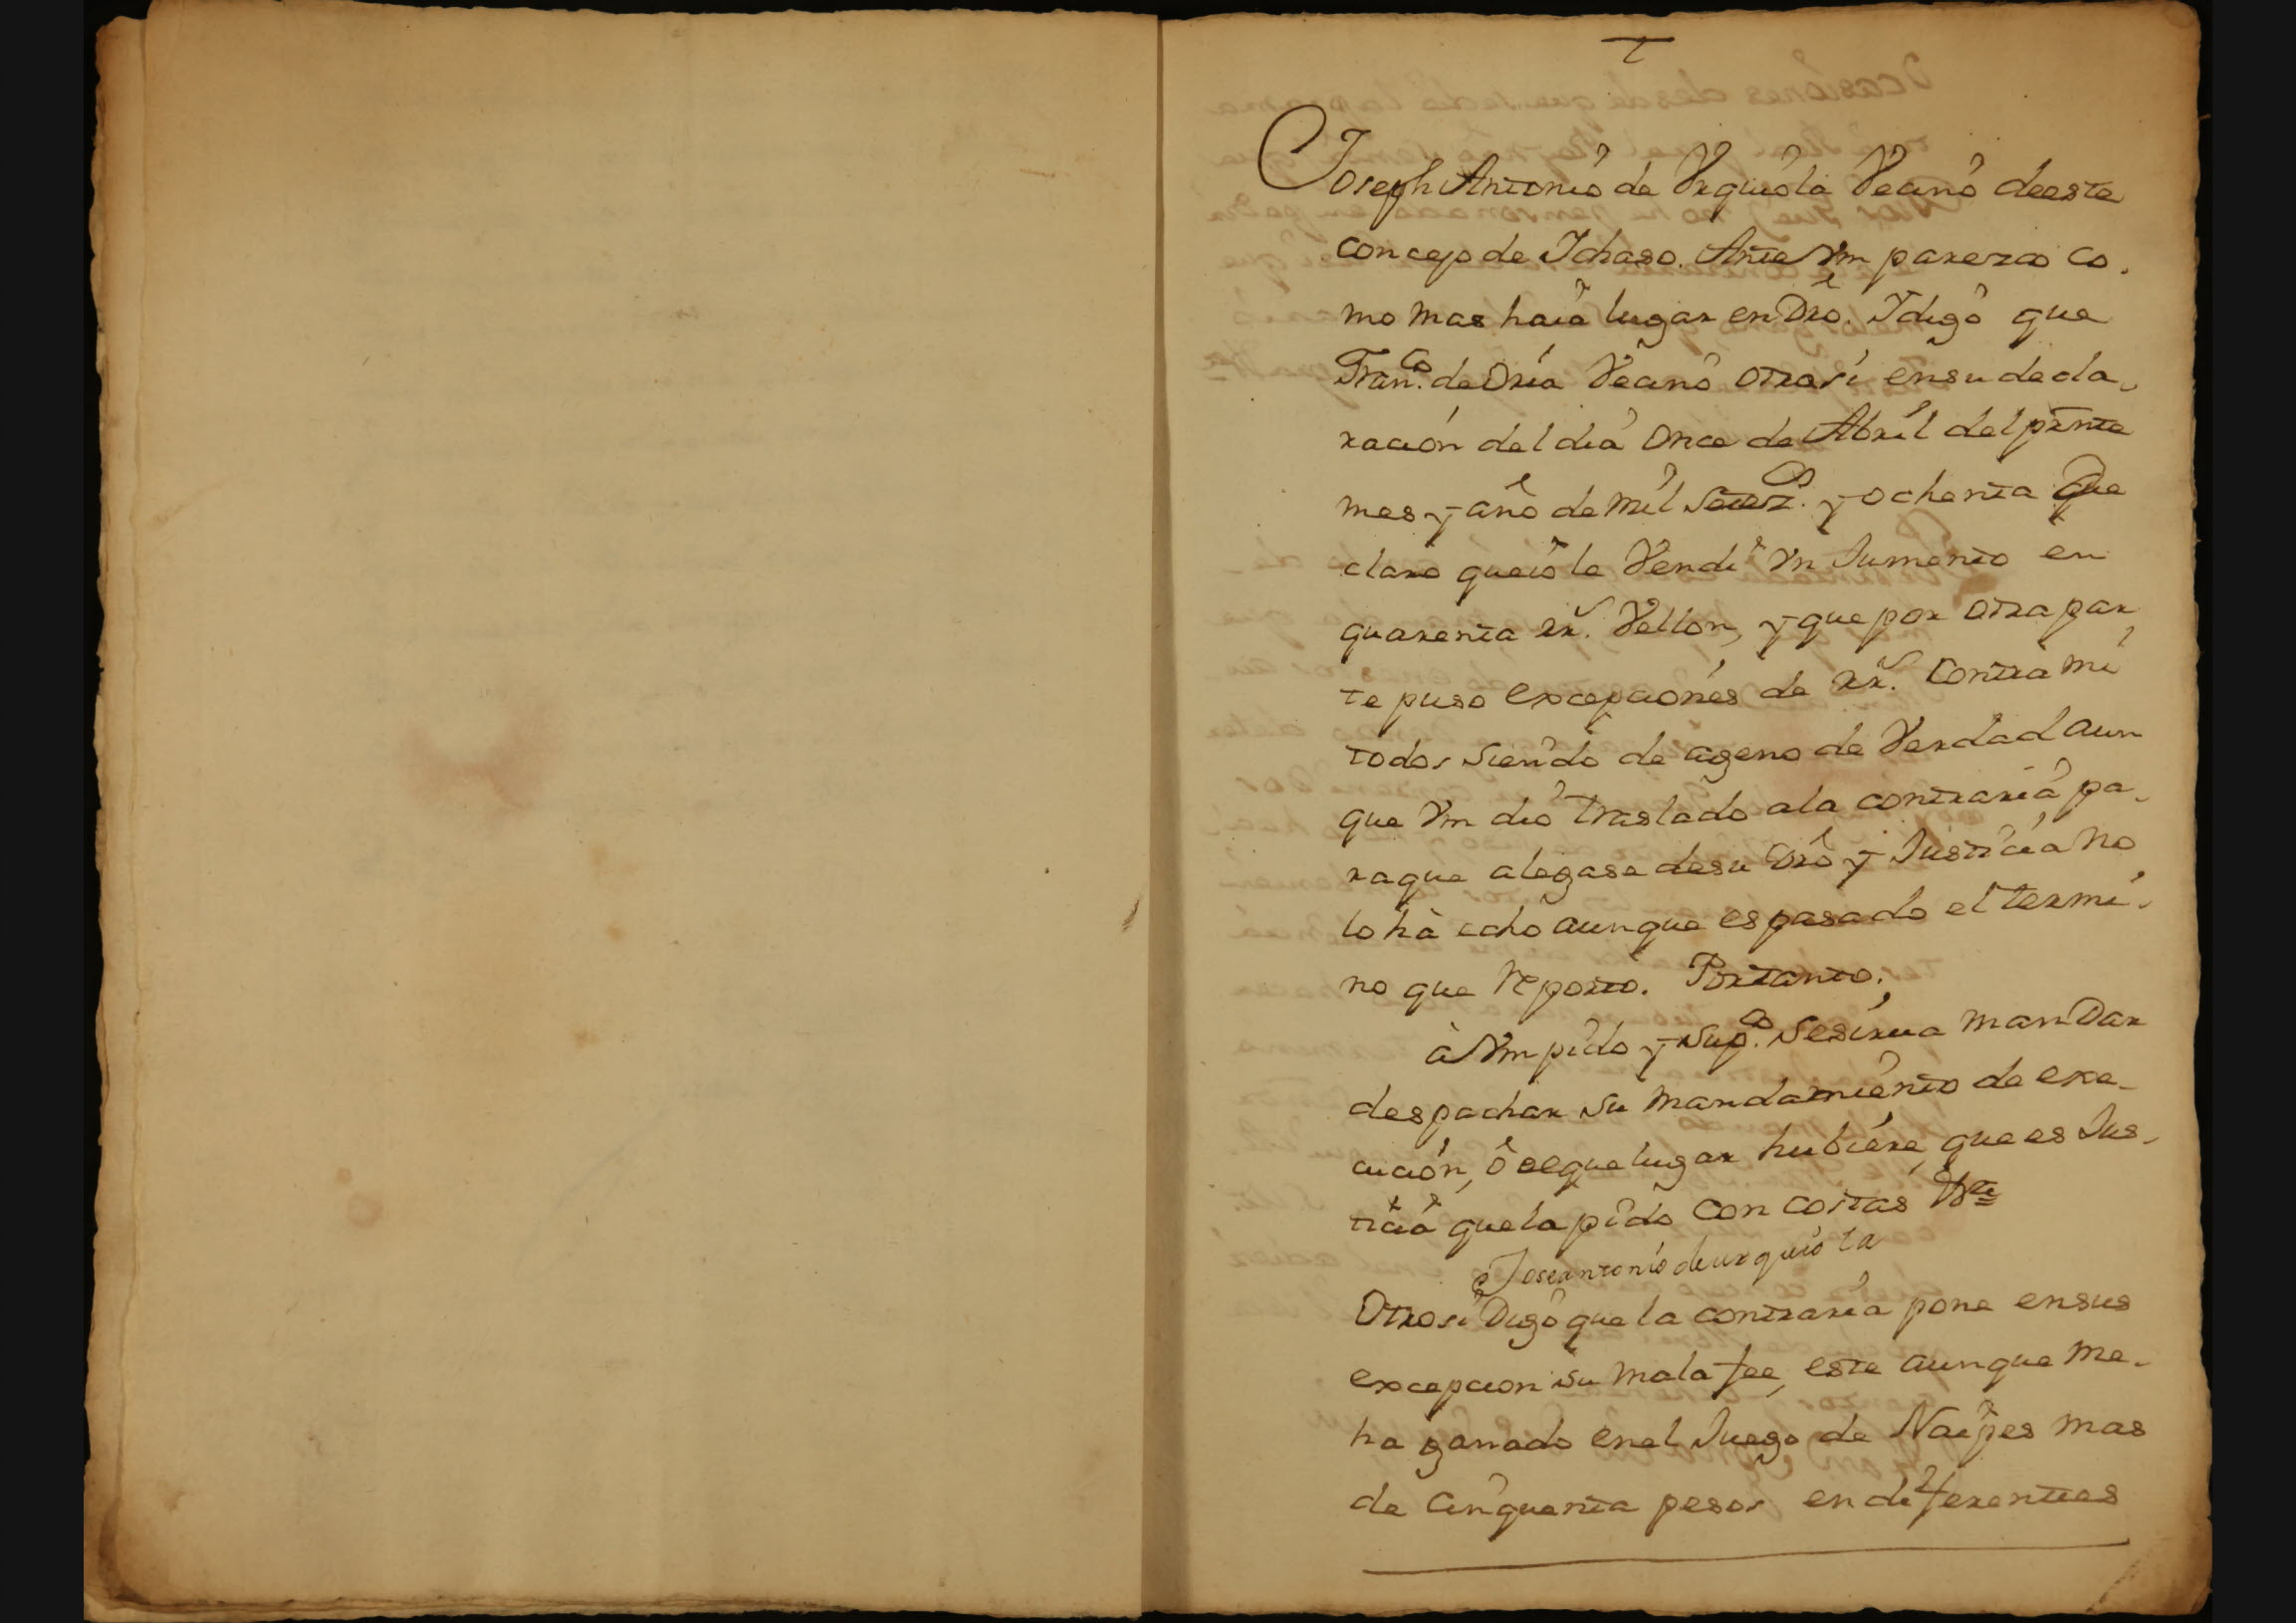 Joseph Antonio de Vrquiola Vecino deeste
concejo de Ichaso. Ante Vm parezco co.
mo mas haia lugar en Dro. Idigo que
Franco. de Oria Vecino otrosi ensu decla-
racion del dia once de Abril del preste
mes y año de mil Setez.os y ochenta que
claro queio le Vendi vn Jumento en
quarenta rr.s Vellon, y que por otra par
te puso excepciones de rr.s contra mi
todos siendo de ageno de Verdad aun
que Vm dio traslado ala contraria pa-
raque alegase desu Dro y Justicia no
lo hà echo aunque es pasado el termi-
no que reporto. Portanto.
à Vm pido y Sup.co Sesirua manDar
despachar su mandamiento de exe-
cucion, ò ceque lugar hubiere, que es Jus-
ticia que la pido con costas Vt.
Joseantonio deurquiola
Otrosi Digo que la contraria pone ensus
excepcion su mala fee, este aunque me-
ha ganado enel Juego de Naipes mas
de cinquenta pesos en diferentes